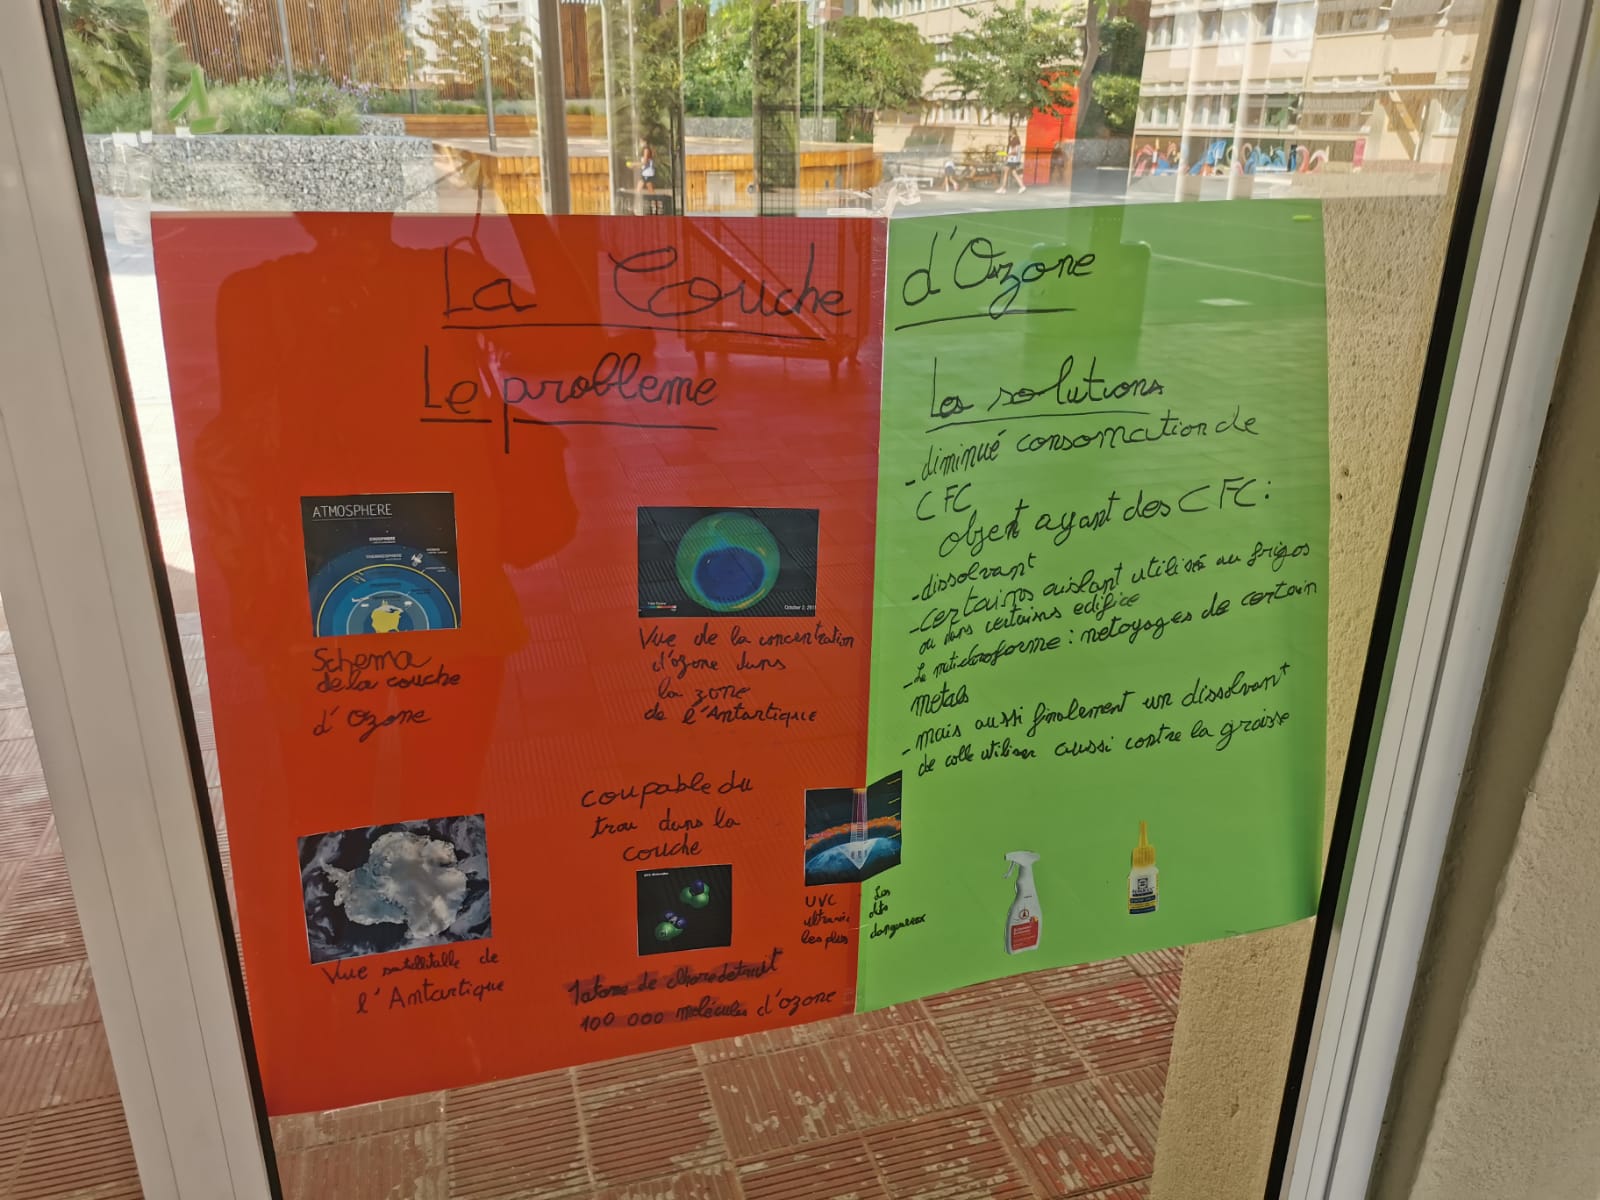 La Couche d'Ozone
Le probleme
ATMOSPHERE
Schema
de la couche
d'Ozone
October 2, 201
Vue de la concentration
d'ozone dans
la zone
de l'Antartique
Vue satellitalle de
l'Antartique
coupable du
trou dans la
couche
1 atome de chlore detruit
100 000 molécules d'ozone
UVC
les plus
Les
dangereux
Les solutions
- diminué consomation de
CFC
objent ayant des CFC :
- dissolvant
- certains utilisé au frigos
ou dans certains edifice
- Le : netoyages de certain
metals
- mais aussi finalement un dissolvant
de colle utiliser aussi contre la graisse